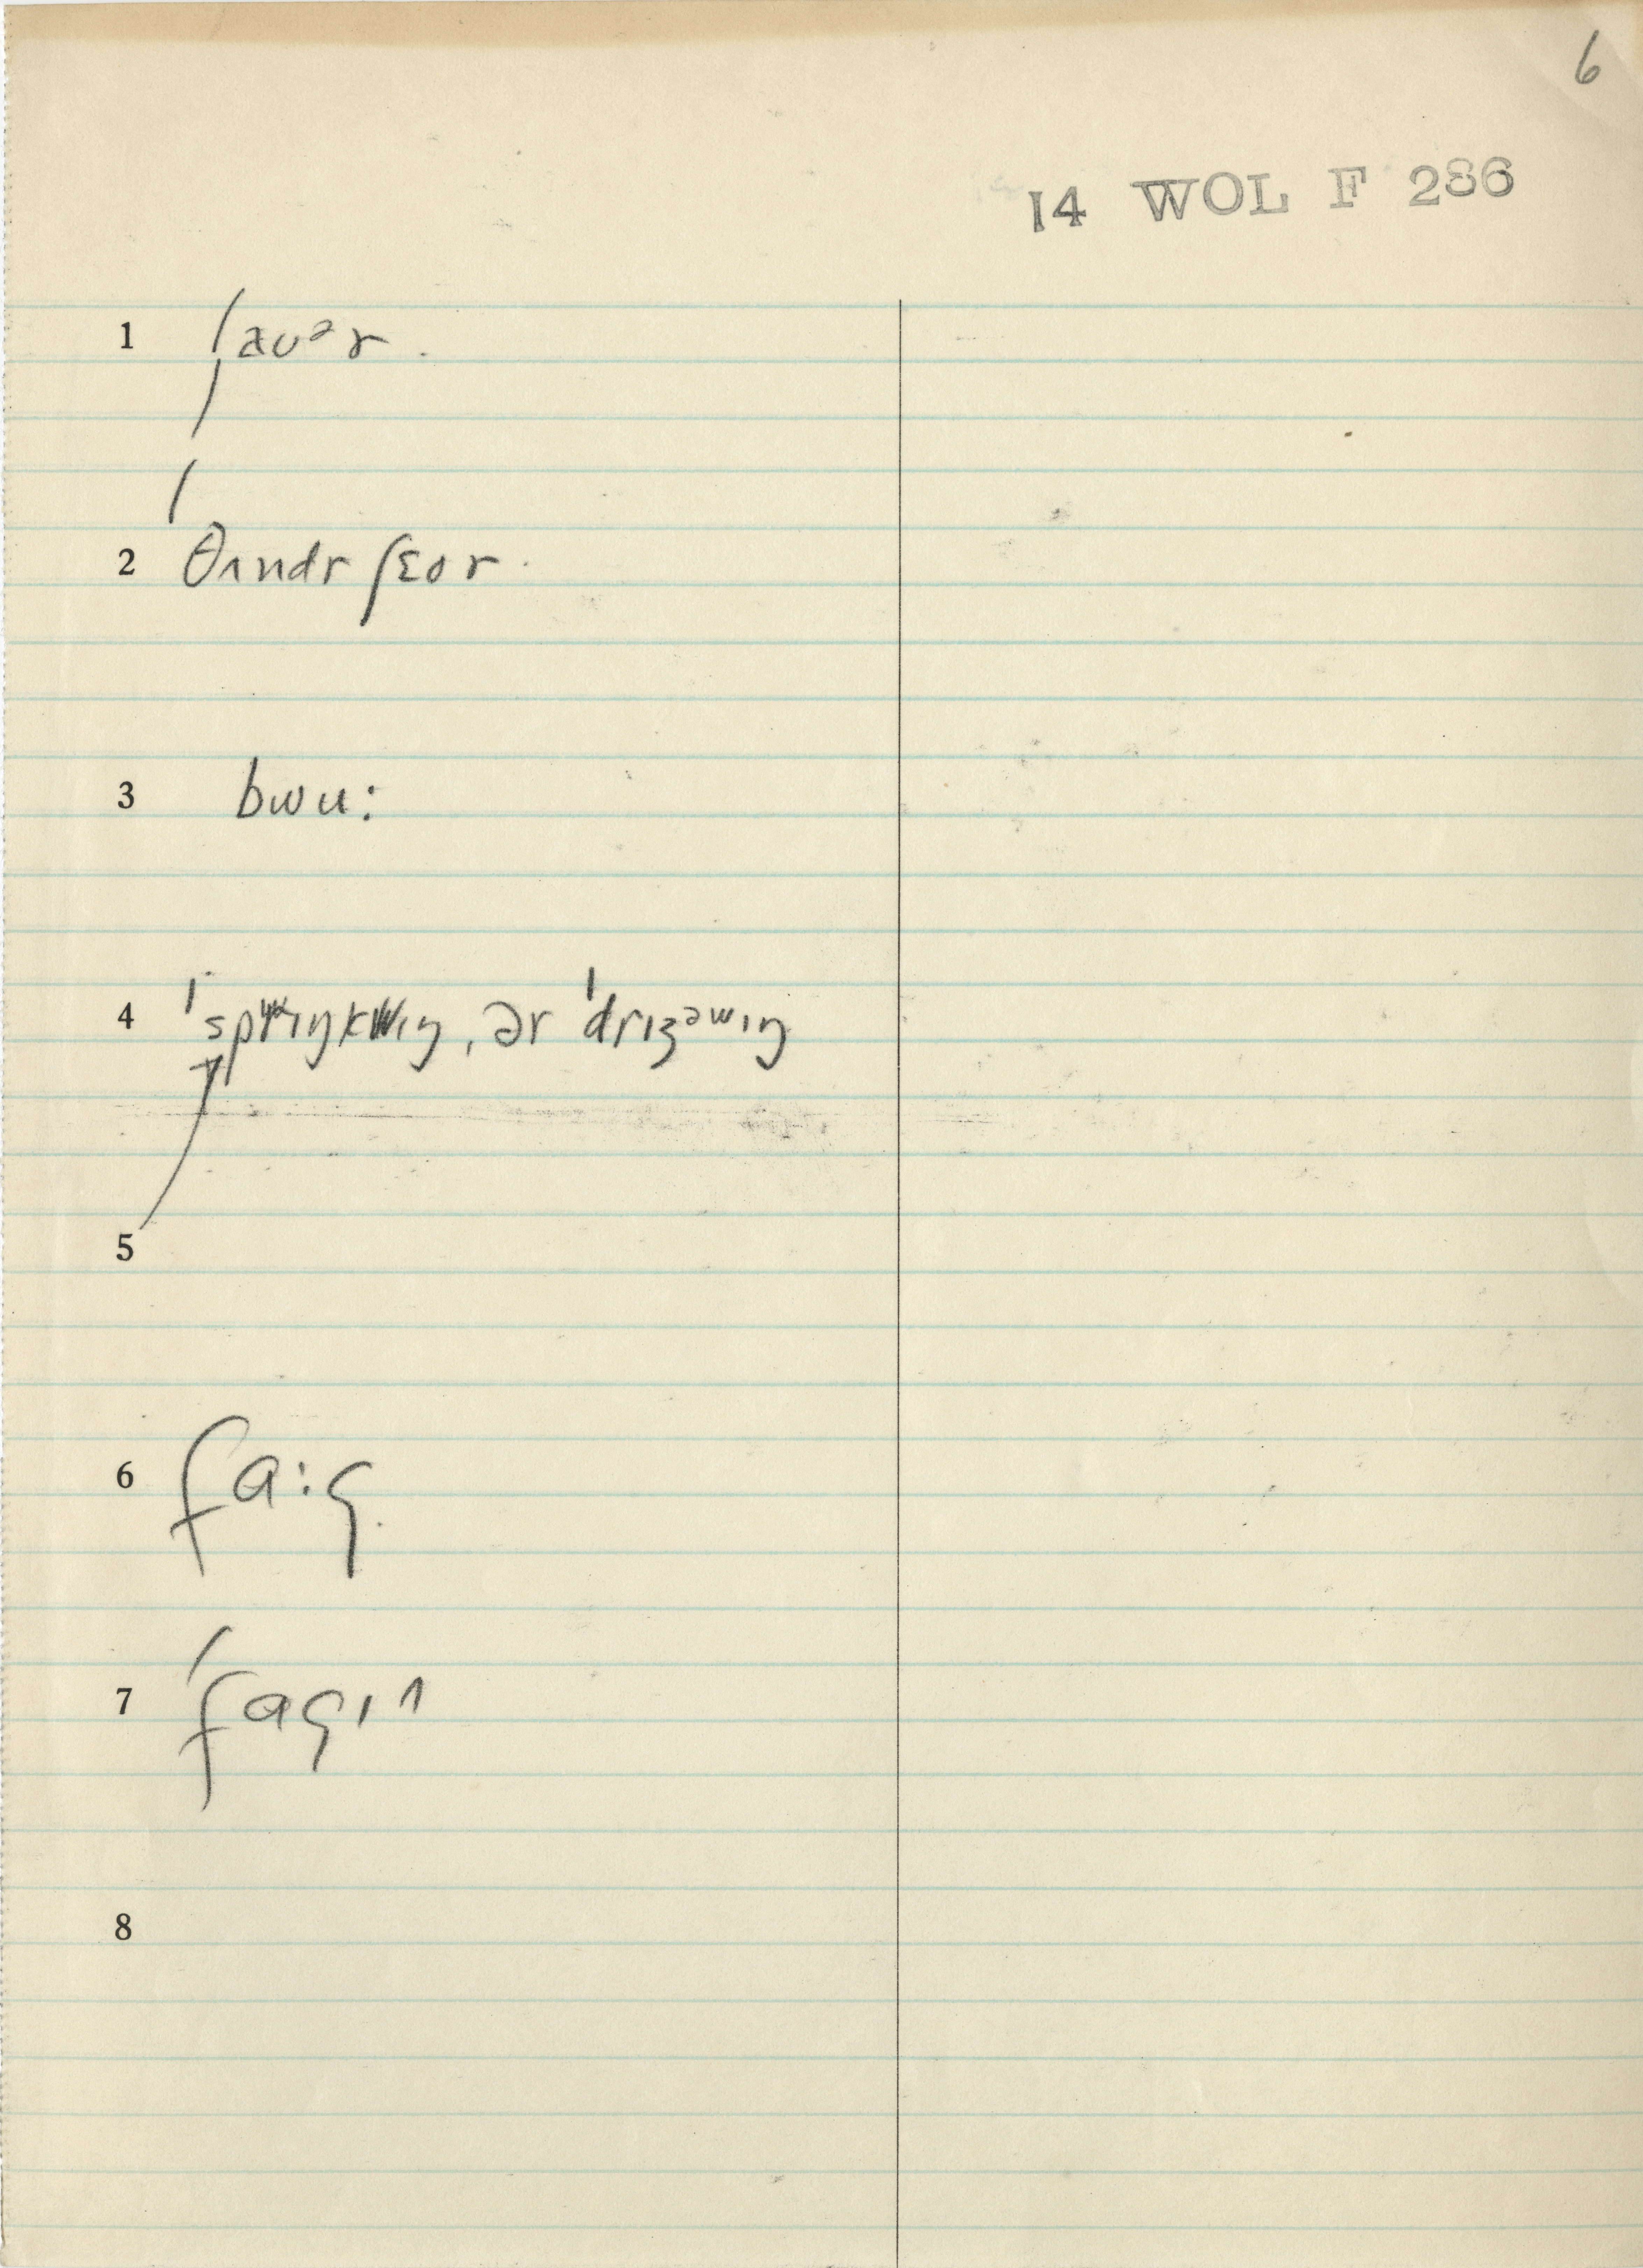 6
14 WOL F 286
1 ʃaʊᵊr.
2 ˈθʌndr ʃɛor.
3 bwu:
4 ˈsprɪŋkwɪŋ, ər ˈdrɪzᵊwɪŋ
5
6 fɑ:g.
7 ˈfɑgɪ^
8